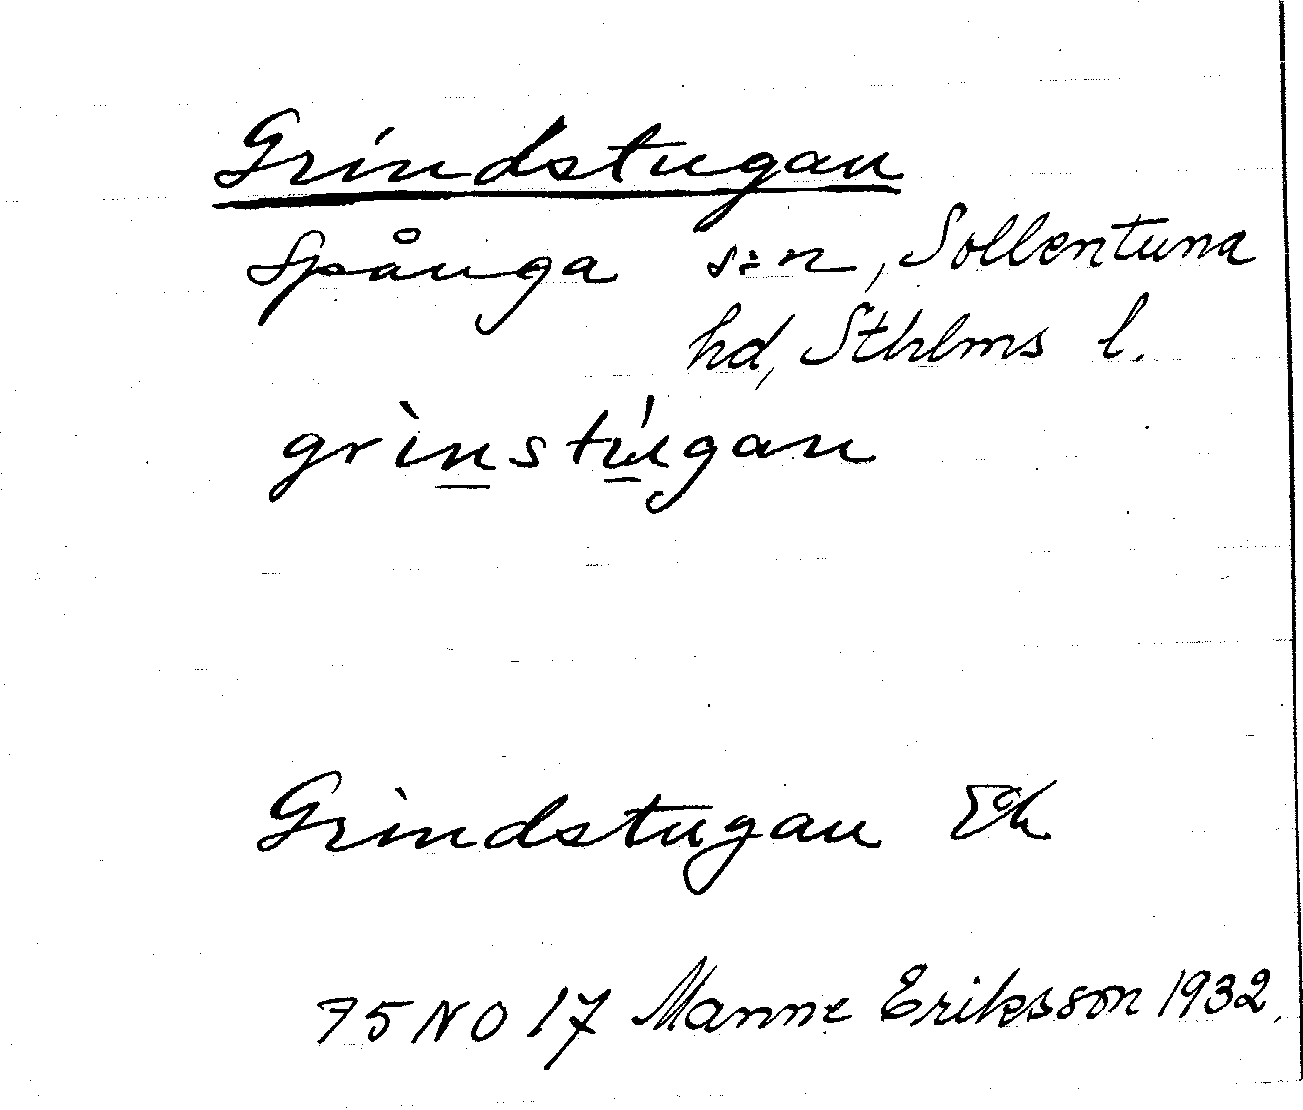 Grindstugan
Spånga s:n, Sollentuna
hd, Sthlms l.
grìnstúgan
Grindstugan Ek
75 NO 17 Manne Eriksson 1932.